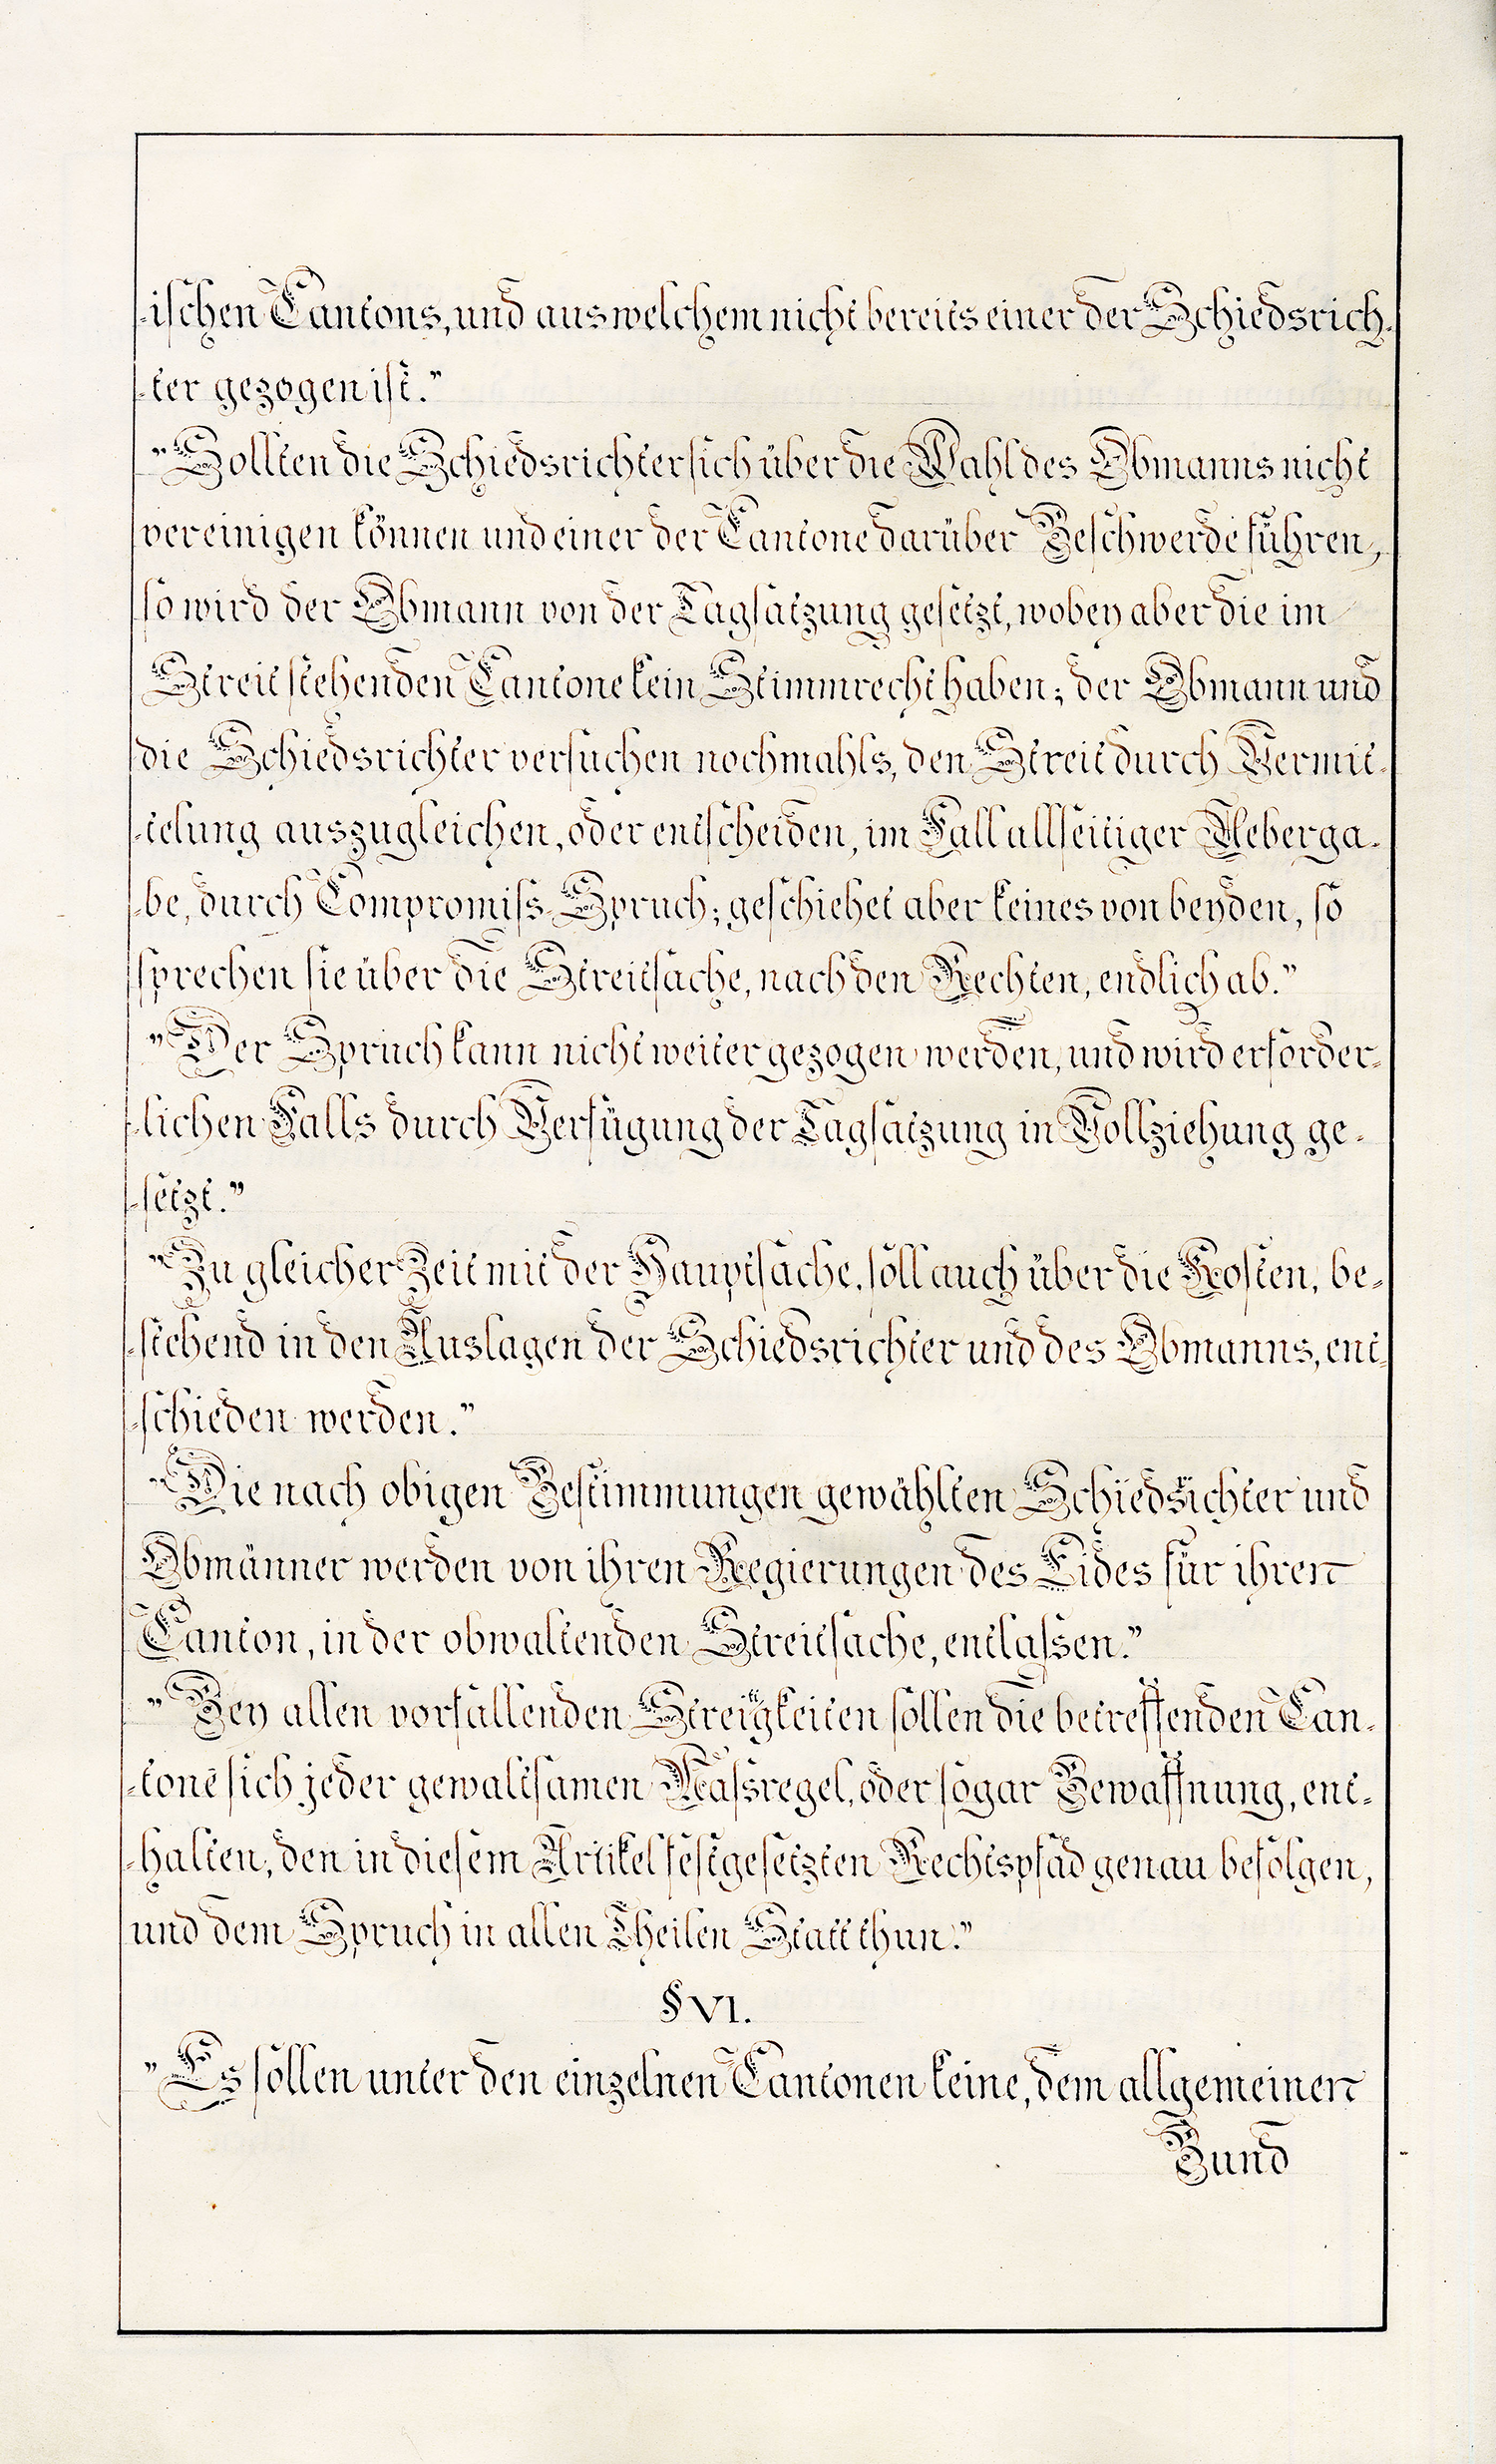 -ischen Cantons, und aus welchem nicht bereits einer der Schiedsrich-
-ter gezogen ist."
"Sollten die Schiedsrichter sich über die Wahl des Obmanns nicht
vereinigen können und einer der Cantone darüber Beschwerde führen,
so wird der Obmann von der Tagsatzung gesetzt, wobey aber die im
Streit stehenden Cantone kein Stimmrecht haben; der Obmann und
die Schiedsrichter versuchen nochmahls, den Streit durch Vermit-
-telung auszugleichen, oder entscheiden, im Fall allseitiger Ueberga-
-be, durch Compromiss-Spruch; geschiehet aber keines von beyden, so
sprechen sie über die Streitsache, nach den Rechten, endlich ab."
"Der Spruch kann nicht weiter gezogen werden, und wird erforder-
-lichen Falls durch Verfügung der Tagsatzung in Vollziehung ge-
-setzt."
"Zu gleicher Zeit mit der Hauptsache, soll auch über die Kosten, be-
-stehend in den Auslagen der Schiedsrichter und des Obmanns, ent-
-schieden werden."
"Die nach obigen Bestimmungen gewählten Schiedsrichter und
Obmänner werden von ihren Regierungen des Eides für ihren
Canton, in der obwaltenden Streitsache, entlassen."
"Bey allen vorfallenden Streitigkeiten sollen die betreffenden Can-
-tone sich jeder gewaltsamen Massregel, oder sogar Bewaffnung, ent-
-halten, den in diesem Artikel festgesetzten Rechtspfad genau befolgen,
und dem Spruch in allen Theilen Statt thun."
§ VI.
"Es sollen unter den einzelnen Cantonen keine, dem allgemeinen
Bund